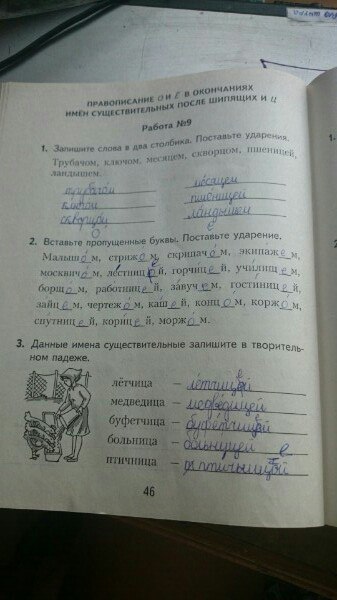 ПРАВОПИСАНИЕ О И Е В ОКОНЧАНИЯХ
ИМЁН СУЩЕСТВИТЕЛЬНЫХ ПОСЛЕ ШИПЯЩИХ И Ц
Работа №9
1. Запишите слова в два столбика. Поставьте ударения.
Трубачом, ключом, месяцем, скворцом, пшеницей,
ландышем.
трубачом месяцем
ключом пшеницей
скворцом ландышем
о е
2. Вставьте пропущенные буквы. Поставьте ударение.
Малышом, стрижом, скрипачом, экипажем,
москвичом, лестницей, горчицей, училищем,
борщом, работницей, завучем, гостиницей,
зайцем, чертежом, кашей, концом, коржом,
спутницей, корицей, моржом.
3. Данные имена существительные запишите в творитель-
ном падеже.
лётчица — лётчицей
медведица — медведицей
буфетчица — буфетчицей
больница — больницей е
птичница —
46